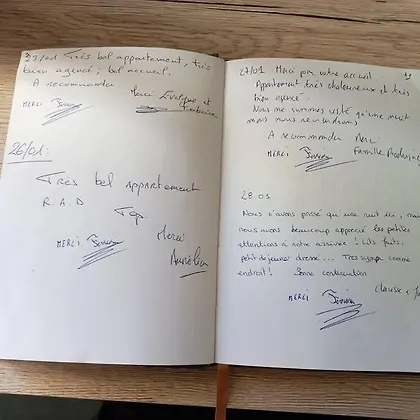 23/01 Très bel appartement, très
bien agencé ; bel accueil.
A recommander
Merci Evelyne et
MERCI
26/01 :
Très bel appartement
R.A.D
Top.
Merci
MERCI
Aurélien
27/01 Merci pour votre accueil
Appartement très chaleureux et très
bien agencé
Nous ne sommes resté qu'une nuit
mais nous reviendrons
A recommander Merci
MERCI Famille
28.01
Nous n'avons passé qu'une nuit ici, mais
nous avons beaucoup apprécié les petites
attentions à notre arrivée ! Lits faits,
petit déjeuner dressé... Très sympa comme
endroit ! Bonne continuation
MERCI